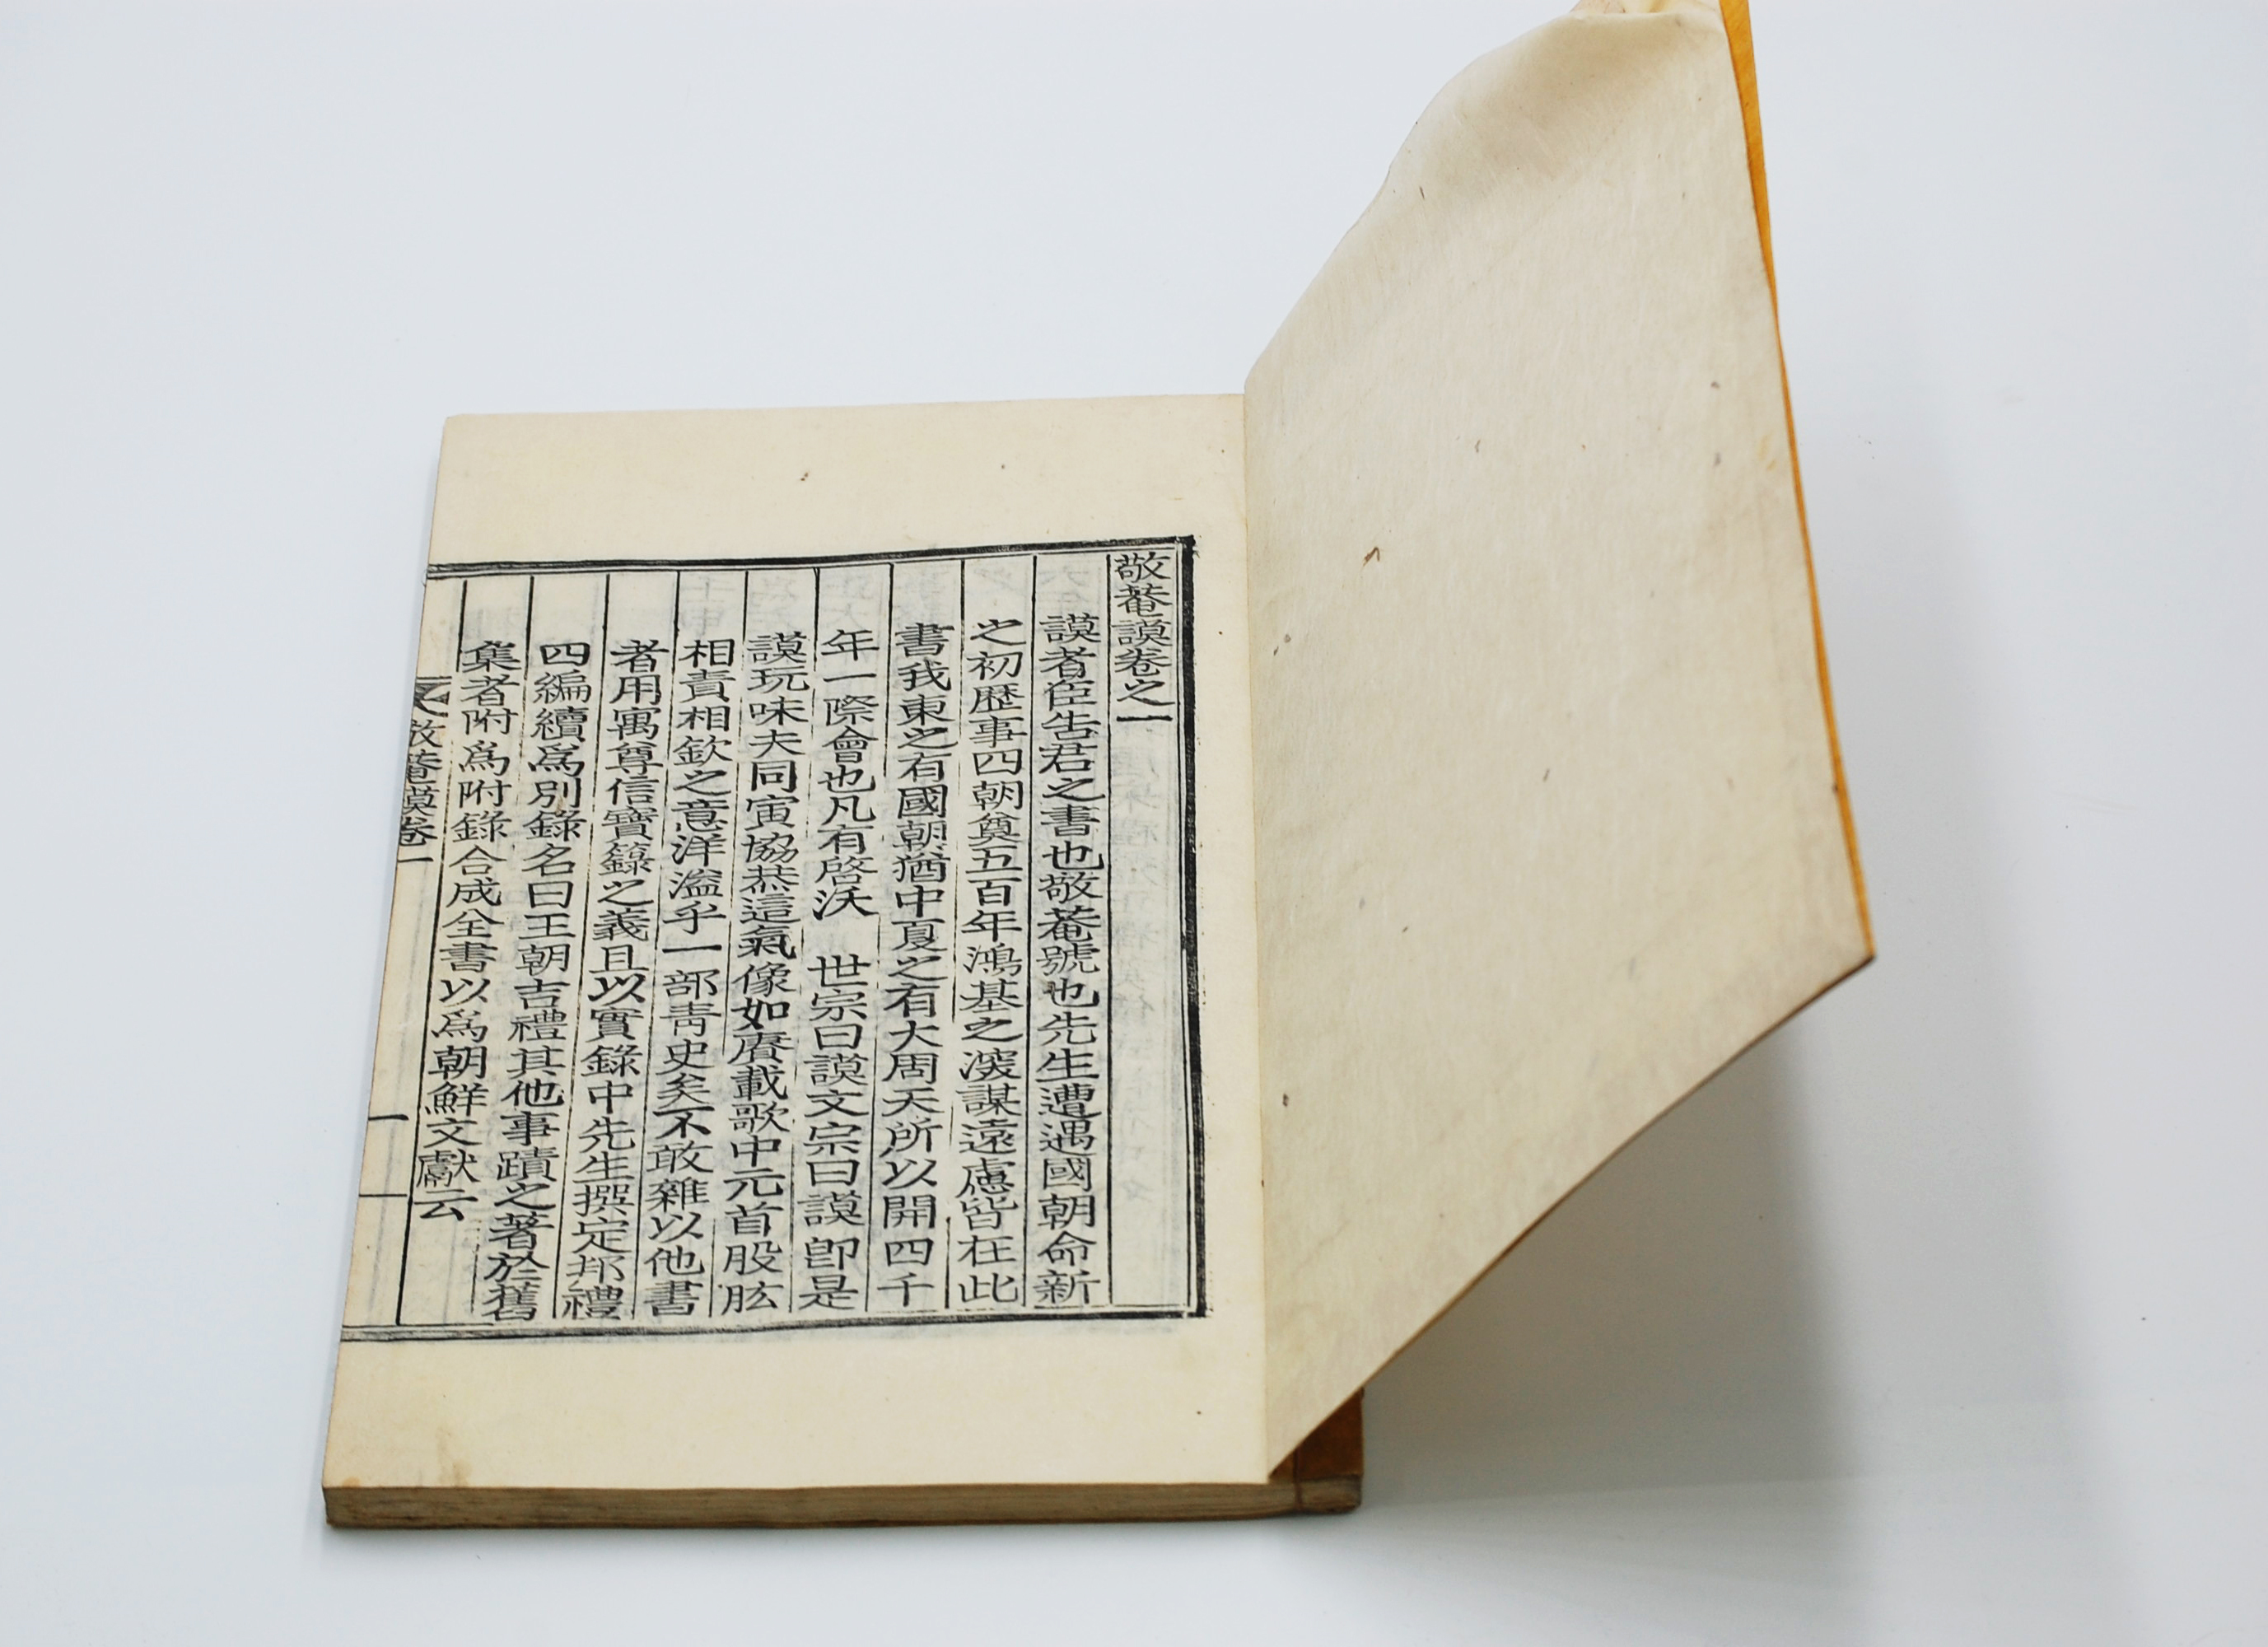 敬菴謨卷之一
謨者臣告君之書也敬菴號也先生遭遇國朝命新
之初歷事四朝奠五百年鴻基之謀遠慮皆在此
書我東之有國朝猶中夏之有大周天所以開四千
年一際會也凡有啓沃 世宗曰謨文宗曰謨卽是
謨玩味夫同寅協恭這氣像如賡載歌中元首股肱
相責相欽之意洋溢乎一部靑史矣不敢雜以他書
者用寓尊信寶籙之義且以實錄中先生撰定邦禮
四編續爲別錄名曰王朝吉禮其他事蹟之著於舊
集者附爲附錄合成全書以爲朝鮮文獻云
敬菴謨卷一 一